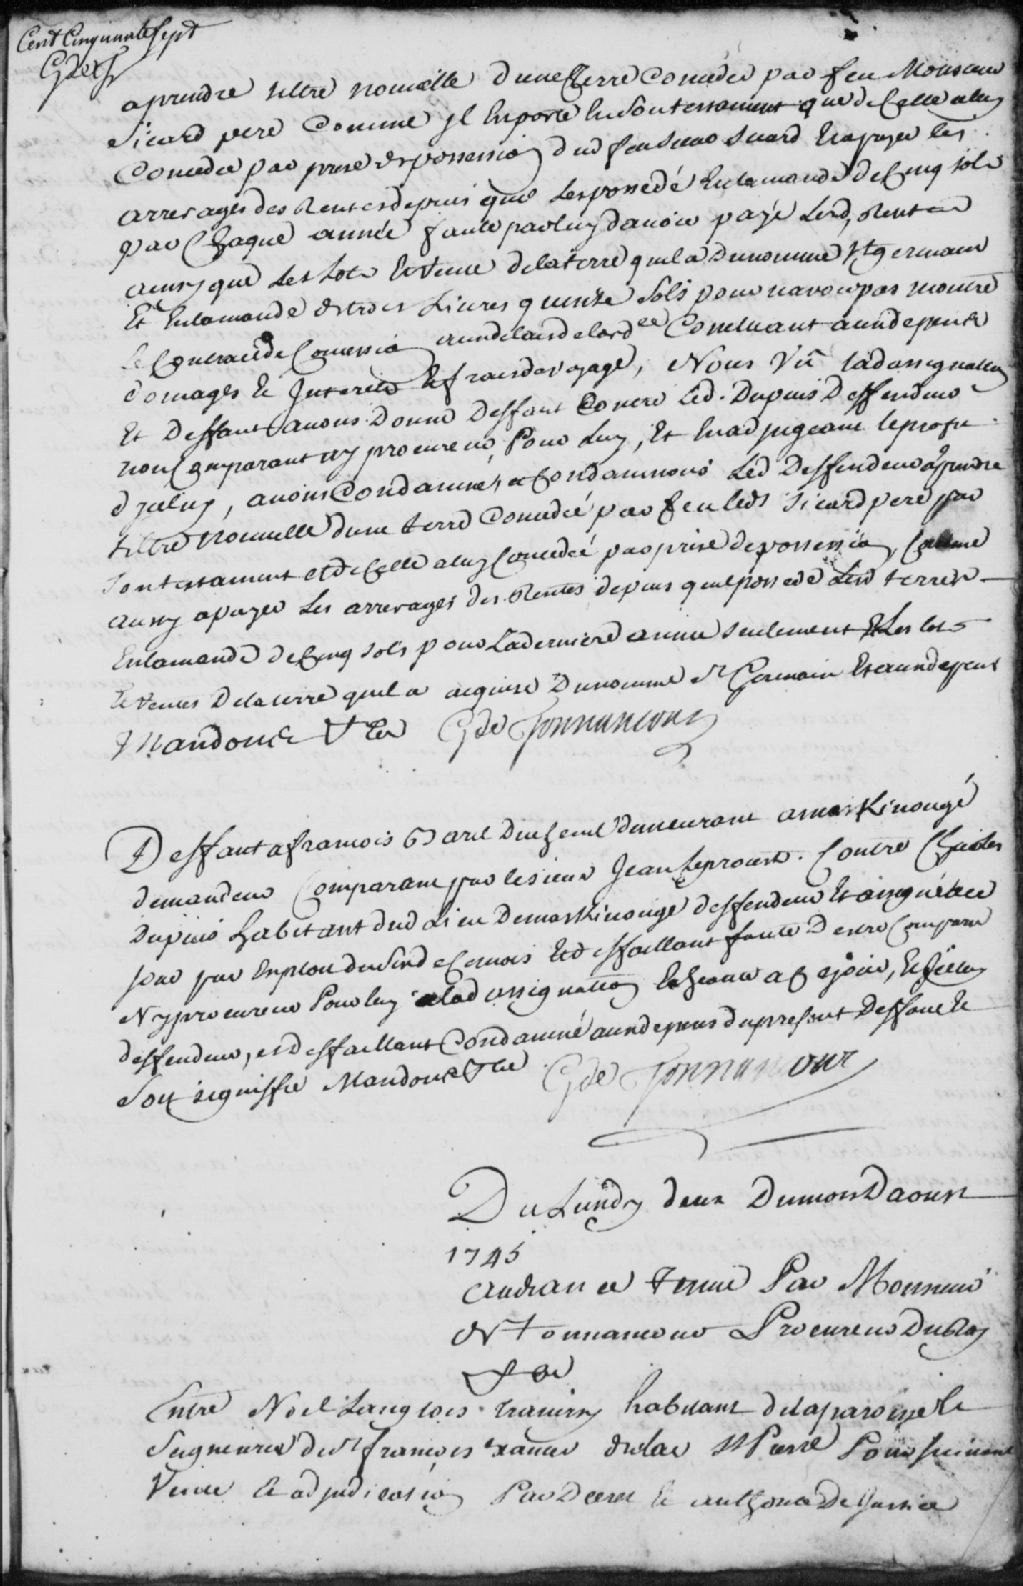 Cent Cinquante Sept
GDeT
a prendre tiltre nouvelle d'une Terre Concedée par feu Monsieur
Sicard pere Comme Jl Enporte En Son testament que de Celle a luy
Concedée par prise de possession dud feu Sieur Sicard Et a payer les
arrerages des Rentes depuis quil les possede En lamande de Cinq sols
par Chaque année faute par luy davoir payé Lesd. Rentes
ainsy que Les lots Et Vente de la terre quil a Du nommé St germain
Et En lamande de trois Livres quinze Sols pour navoir pas montré
le Contract de Concession au desir de lord.ce Concluant aux depens
Domages Et Jnterets Et frais de voyage, Nous Vû lad. assignation
Et Deffaut avons Donné Deffaut Contre Led. Dupuis Deffendeur
non Comparant ny procureur, Pour Luy, Et En adjugeant le profit
d'Jceluy, avons Condamné et Condamnons Led Deffendeur a prendre
tiltre Nouvelle d'une terre Concedée par feu led. Sicard pere par
Son testament et de Celle a luy Concedée par prise de possession, Comme
aussy a payer Les arrerages des Rentes depuis quil possede Lesd terres
En lamande de Cinq sols pour La derniere année seulement Et Les lots
Et Ventes De la terre quil a acquise Du nommé St Germain Et aux depens
Mandons &ca GDe Tonnancour
Deffaut a francois Baril Duchenil Demeurant a maskinongé
demandeur Comparant par le sieur Jean Leproust. Contre Charles
Dupuis habitant dud Lieu De maskinongé deffendeur Et assigné
par Exploit du de Ce mois Et deffaillant faute D'estre Comparu
Ny procureur Pour luy a lad assignation Echeante a Ce jour, Et
deffendeur, et deffaillant Condamné aux depens du present Deffaut Et
Soit signiffié Mandons &ca GDe Tonnancour
Du Lundy deux Du mois Daoust
1745
Audiance tenue Par Monsieur
De Tonnancour Procureur Du Roy
&ca
Entre Noel Langlois traversy habitant de la paroisse Et
Seigneurie de St francois Xavier du lac St Pierre Poursuivant
Vente Et adjudication Par Decret Et authorité De Justice